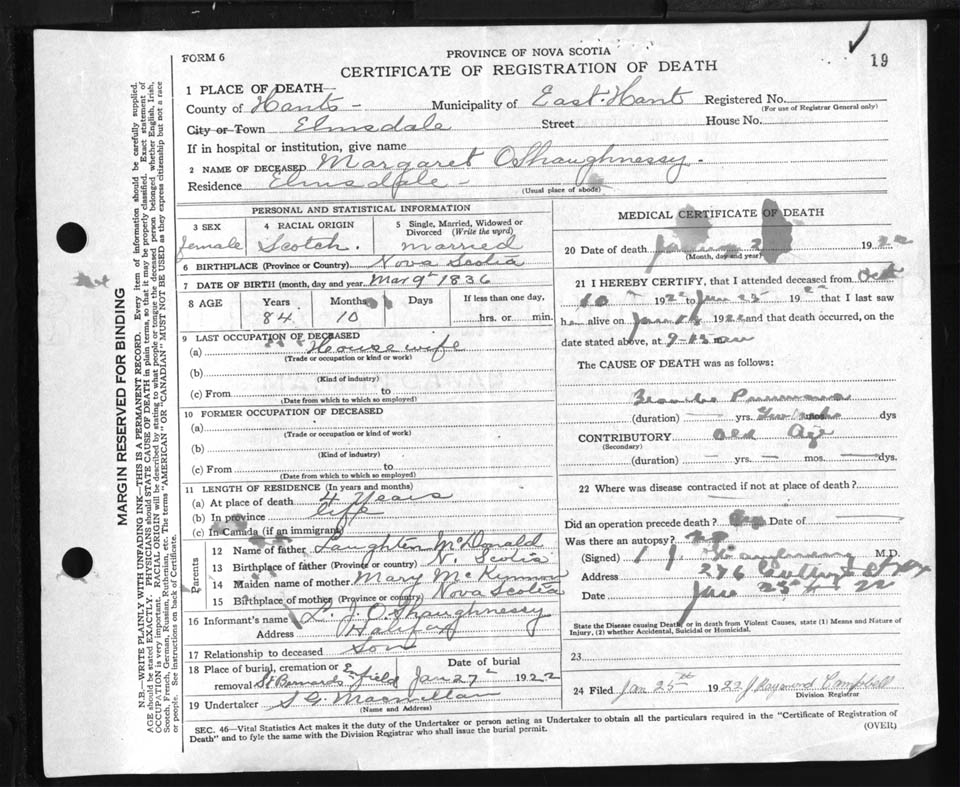 19
FORM 6
PROVINCE OF NOVA SCOTIA
CERTIFICATE OF REGISTRATION OF DEATH
1 PLACE OF DEATH—
County of Hants - Municipality of East Hant Registered No.
(For use of Registrar General only)
City or Town Elmsdale Street House No.
If in hospital or institution, give name
2 NAME OF DECEASED Margaret OShaughnessy -
Residence Elmsdale -
(Usual place of abode)
PERSONAL AND STATISTICAL INFORMATION
3 SEX 4 RACIAL ORIGIN 5 Single, Married, Widowed or Divorced (Write the word)
female Scotch. married
6 BIRTHPLACE (Province or Country) Nova Scotia
7 DATE OF BIRTH (month, day and year) Mar 9th 1836
8 AGE Years Months Days If less than one day,
84 10 hrs. or min.
9 LAST OCCUPATION OF DECEASED
(a) House wife
(Trade or occupation or kind or work)
(b)
(Kind of industry)
(c) From to
(Date from which to which so employed)
10 FORMER OCCUPATION OF DECEASED
(a)
(Trade or occupation or kind of work)
(b)
(Kind of industry)
(c) From to
(Date from which to which so employed)
11 LENGTH OF RESIDENCE (In years and months)
(a) At place of death 4 Years
(b) In province life
(c) In Canada (if an immigrant)
Parents
12 Name of father Laughten McDonald
13 Birthplace of father (Province or country) N. Scotia
14 Maiden name of mother Mary McKinnon
15 Birthplace of mother (Province or country) Nova Scotia
16 Informant's name L. J. O.Shaughnessy
Address Halifax
17 Relationship to deceased Son
18 Place of burial, cremation or removal St Bernards Enfield Date of burial Jan 27th 1922
19 Undertaker S G Macmillan
(Name and Address)
MEDICAL CERTIFICATE OF DEATH
20 Date of death 1922
(Month, day and year)
21 I HEREBY CERTIFY, that I attended deceased from Oct
10 192 to Jan 23 192 that I last saw
h alive on Jan 1922 and that death occurred, on the
date stated above, at 9-15
The CAUSE OF DEATH was as follows:
(duration) yrs. mos. dys
CONTRIBUTORY Old Age
(Secondary)
(duration) — yrs. — mos. — dys.
22 Where was disease contracted if not at place of death?
Did an operation precede death? Date of
Was there an autopsy? no
(Signed) M.D.
Address 276
Date Jan 25th 22
State the Disease causing Death, or in death from Violent Causes, state (1) Means and Nature of Injury, (2) whether Accidental, Suicidal or Homicidal.
23
24 Filed Jan 25th 1922 J Raymond Campbell
Division Registrar
SEC. 46—Vital Statistics Act makes it the duty of the Undertaker or person acting as Undertaker to obtain all the particulars required in the "Certificate of Registration of
Death" and to fyle the same with the Division Registrar who shall issue the burial permit.
(OVER)
MARGIN RESERVED FOR BINDING
N.B.—WRITE PLAINLY WITH UNFADING INK—THIS IS A PERMANENT RECORD. Every item of information should be carefully supplied.
AGE should be stated EXACTLY. PHYSICIANS should STATE CAUSE OF DEATH in plain terms, so that it may be properly classified. Exact statement of
OCCUPATION is very important. RACIAL ORIGIN will be described by stating to what people or tongue the deceased person belonged whether English, Irish,
Scotch, French, German, Russian, Ruthenian, etc. The terms "AMERICAN" OR "CANADIAN" MUST NOT BE USED as they express citizenship but not a race
or people. See instructions on back of Certificate.